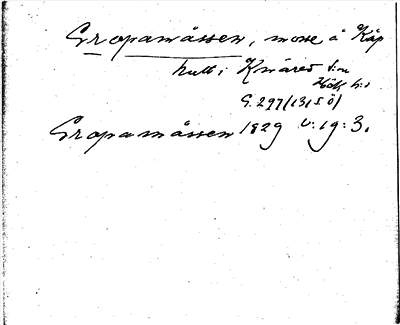 Gropamåssen, mosse å Kåp
hult i Knäred s:n
Höks h:d
G. 297 (1315 ö)
Gropamåssen 1829 U: 19: 3.